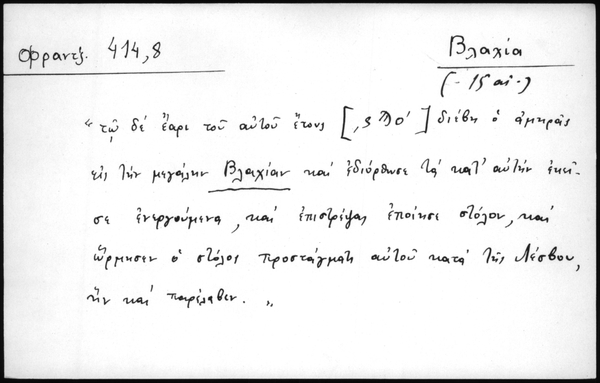 Φραντζ. 414,8
Βλαχία
(- 15 αι. -)
"τῷ δέ ἔαρι τοῦ αὐτοῦ ἔτους [,ϛϠο'] διέβη ὁ ἀμηρᾶς
εἰς τὴν μεγάλην Βλαχίαν καί ἐδιόρθωσε τά κατ' αὐτήν ἐκεῖ-
σε ἐνεργούμενα, καί ἐπιστρέψας ἐποίησε στόλον, καί
ὥρμησεν ὁ στόλος προστάγματι αὐτοῦ κατά τῆς Λέσβου,
ἥν καί παρέλαβεν."